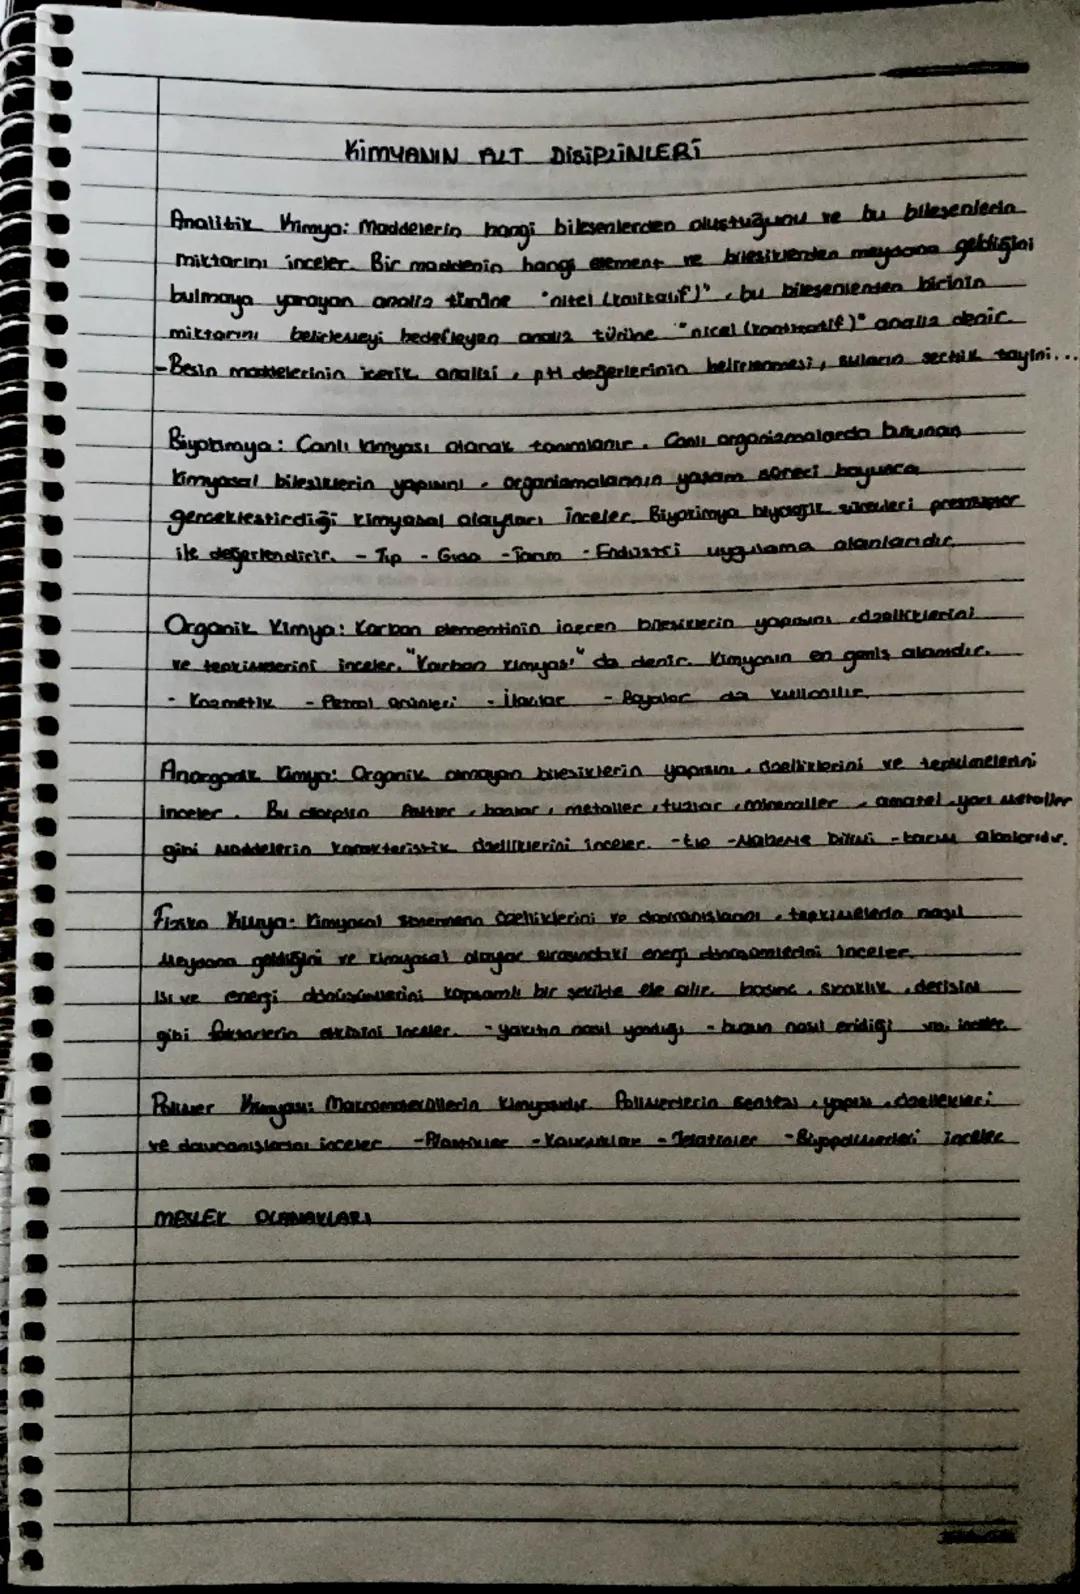 KİMYANIN ALT DİSİPLİNLERİ
Analitik Kimya: Maddelerin hangi bileşenlerden oluştuğunu ve bu bileşenlerin
miktarını inceler. Bir maddenin hangi element ve bileşiklerden meydana geldiğini
bulmaya yarayan analiz türüne "nitel (kalitatif)", bu bileşenlerden birinin
miktarını belirlemeyi hedefleyen analiz türüne "nicel (kantitatif)" analiz denir.
-Besin maddelerinin içerik analizi, pH değerlerinin belirlenmesi, suların sertlik tayini...
Biyokimya: Canlı kimyası olarak tanımlanır. Canlı organizmalarda bulunan
kimyasal bileşiklerin yapısını, organizmalarının yaşam süreci boyunca
gerçekleştirdiği kimyasal olayları inceler. Biyokimya biyolojik süreçleri
ile değerlendirir. - Tıp - Gıda - Tarım - Endüstri uygulama alanlarıdır.
Organik Kimya: Karbon elementinin içeren bileşiklerin yapısını, özelliklerini
ve tepkimelerini inceler. "Karbon kimyası" da denir. Kimyanın en geniş alanıdır.
- Kozmetik - Petrol ürünleri - İlaçlar - Boyalar da kullanılır.
Anorganik Kimya: Organik olmayan bileşiklerin yapısını, özelliklerini ve tepkimelerini
inceler. Bu disiplin Asitler, bazlar, metaller, tuzlar, mineraller, ametal, yarı metaller
gibi maddelerin karakteristik özelliklerini inceler. -tıp -Malzeme bilimi -tarım alanlarıdır.
Fiziko Kimya: Kimyasal özelliklerini ve davranışlarını, tepkimelerin nasıl
Meydana geldiğini ve kimyasal olaylar sırasındaki enerji dönüşümlerini inceler.
Isı ve enerji dönüşümlerini kapsamlı bir şekilde ele alır. basınç, sıcaklık, derişim
gibi faktörlerin etkisini inceler. - yakıtın nasıl yandığı - buzun nasıl eridiği vb. inceler.
Polimer Kimyası: Makromoleküllerin kimyasıdır. Polimerlerin sentezi, yapısı, özellikleri
ve davranışlarını inceler -Plastikler -Kauçuklar - Jelatinler -Biyopolimerleri inceler
MESLEK OLANAKLARI